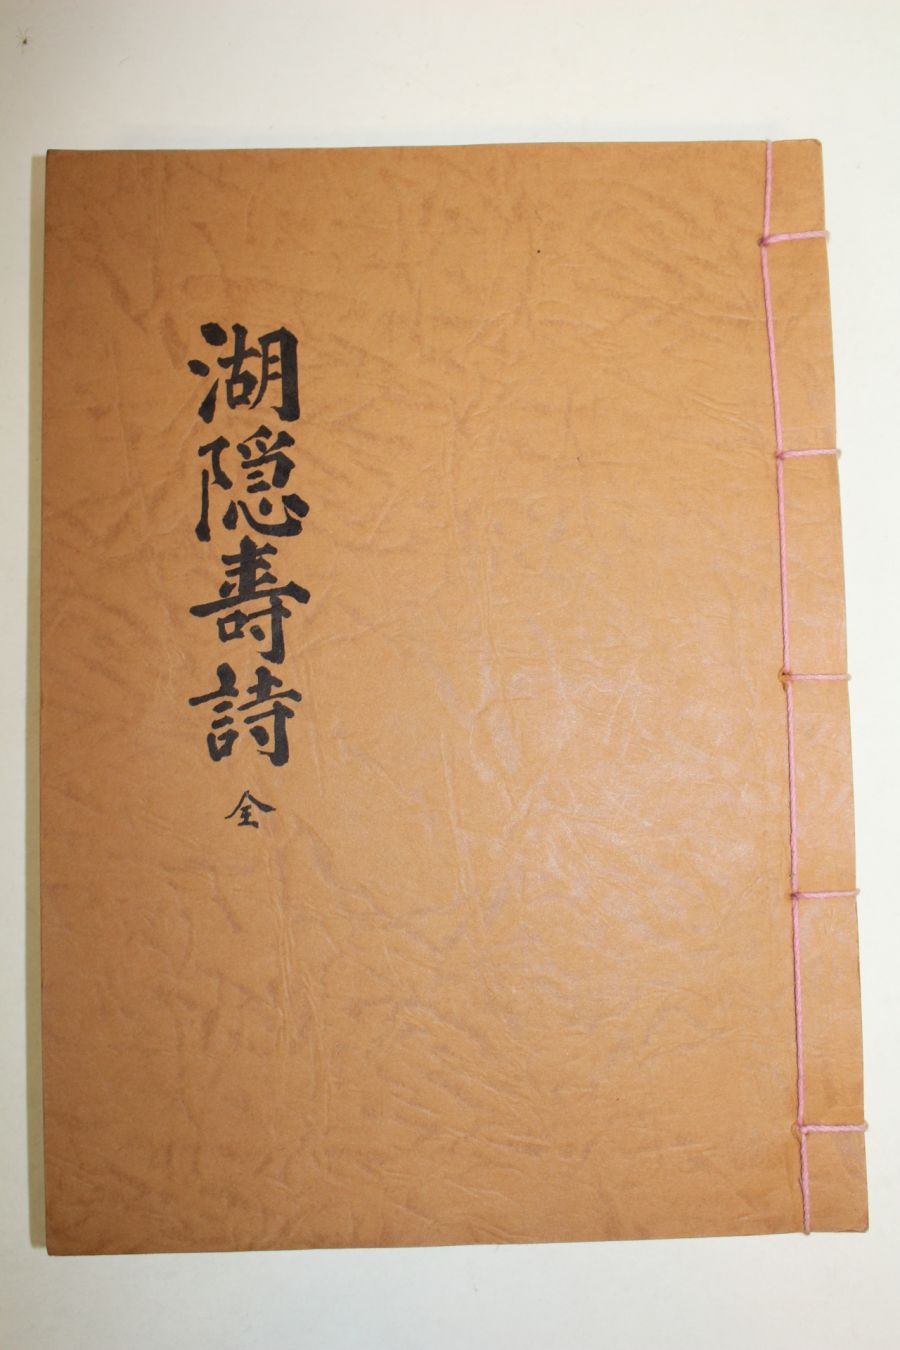 湖隠壽詩 全